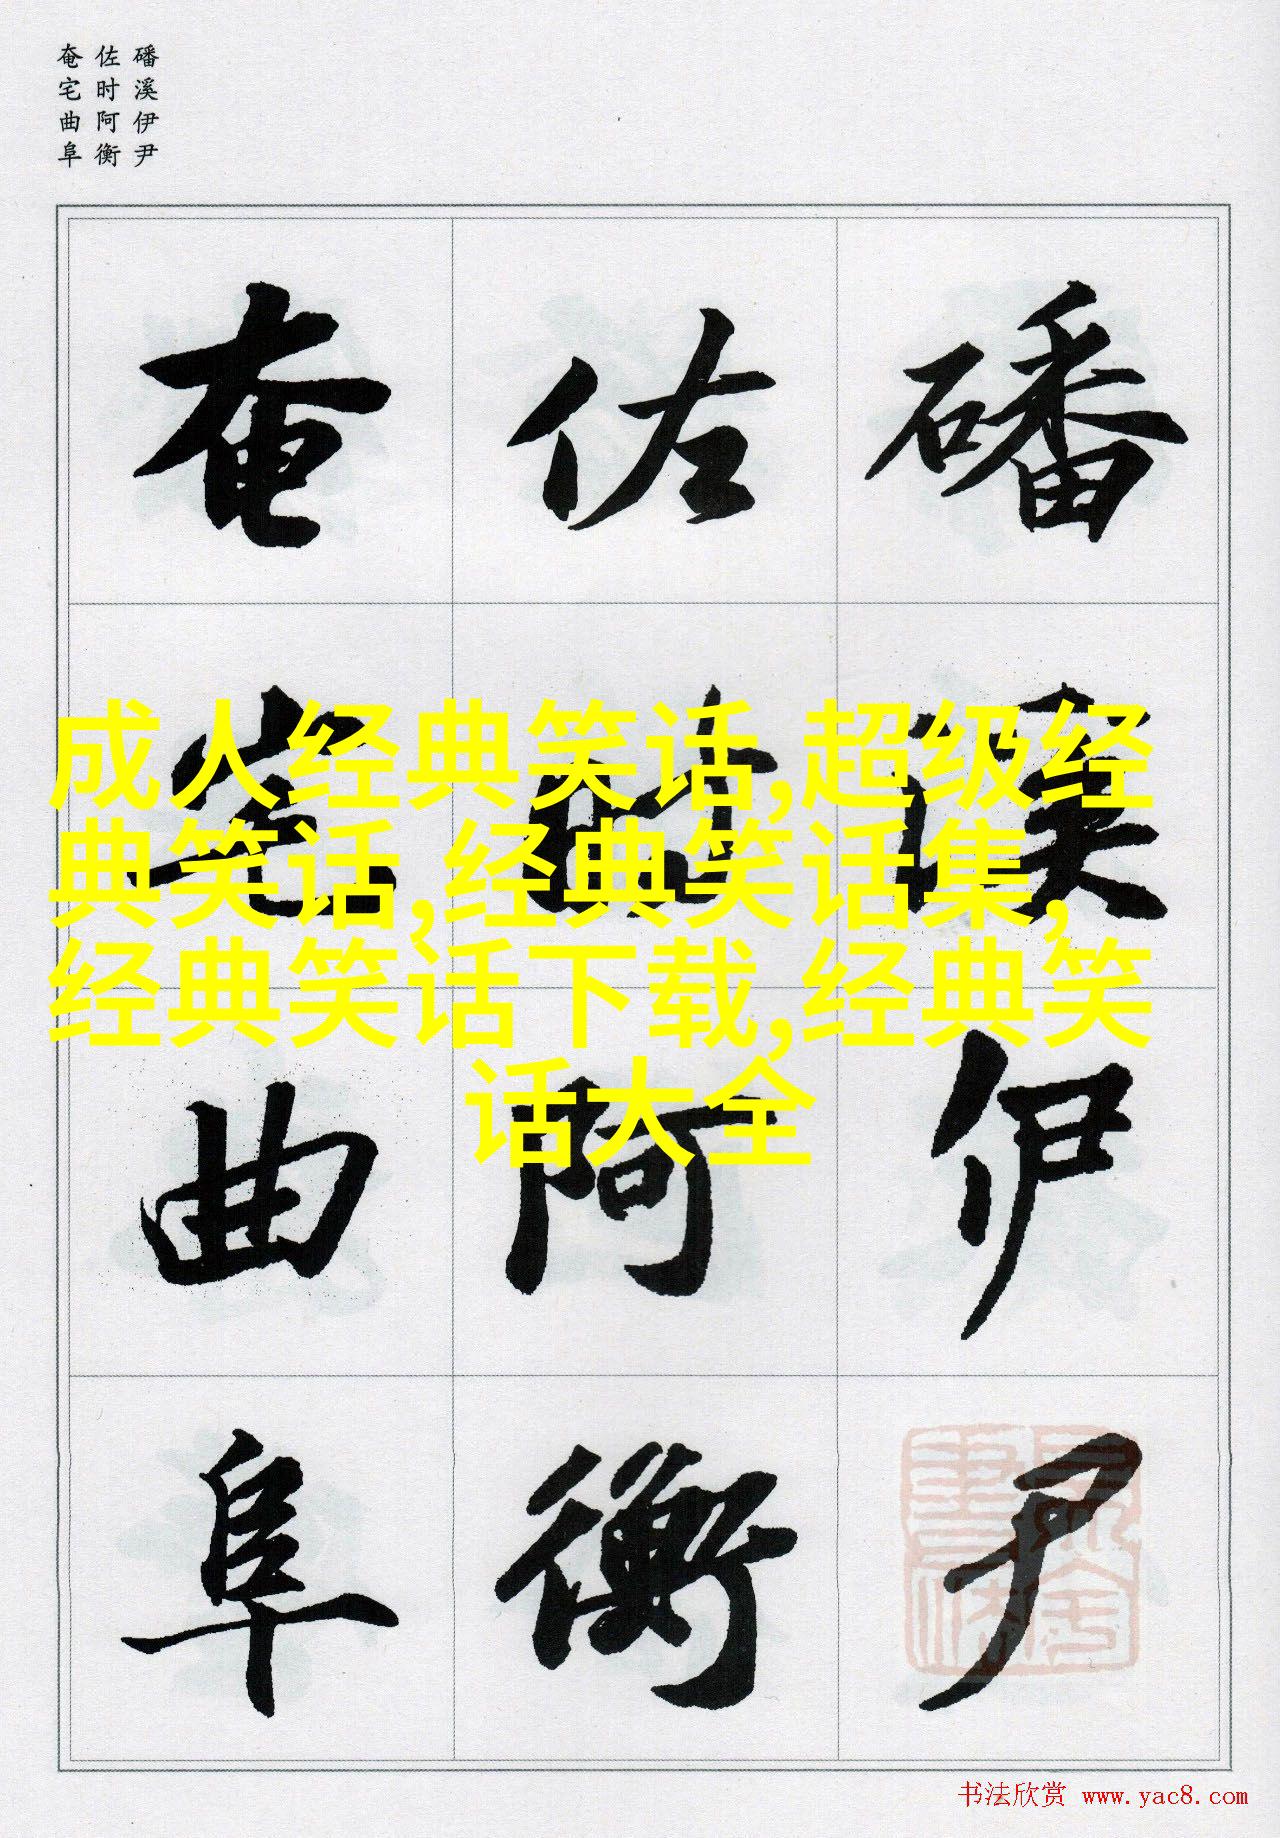 磻溪伊尹
佐时阿衡
奄宅曲阜
磻溪伊尹
佐时阿衡
奄宅曲阜
成人经典笑话,超级经
典笑话,经典笑话集,
经典笑话下载,经典笑
话大全
书法欣赏 www.yac8.com